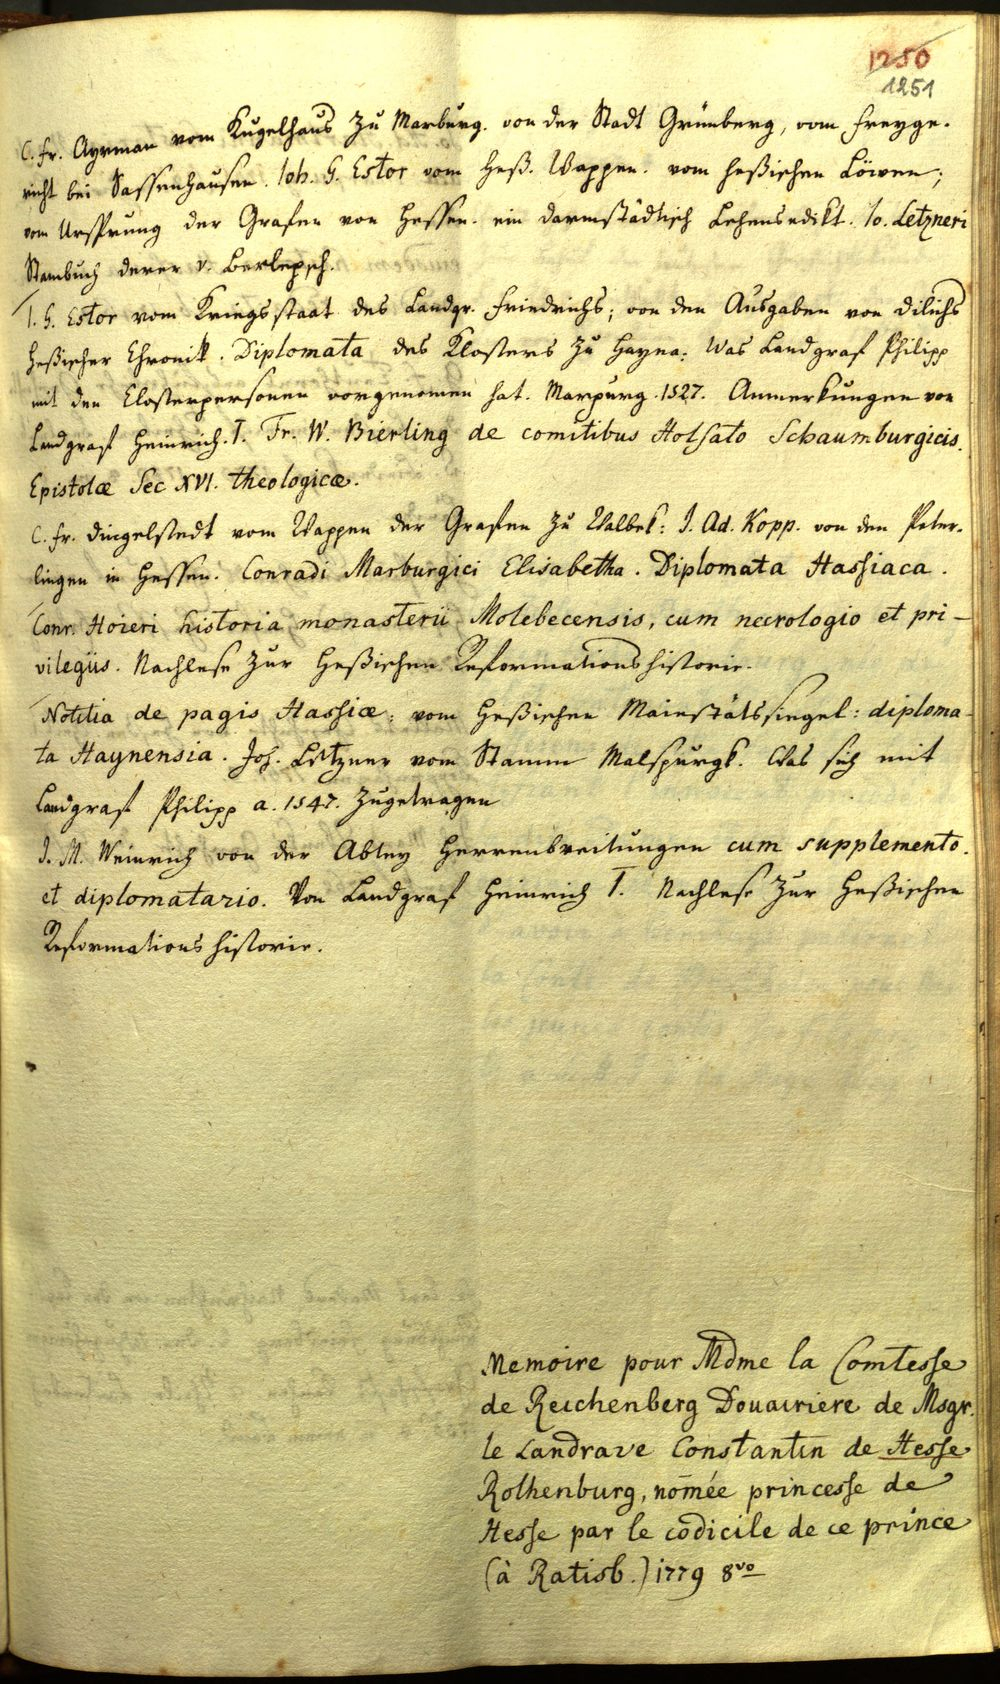 1250
1251
C. Fr. Ayrman vom Kugelhaus zu Marburg. von der Stadt Grünberg, vom Freyge-
richt bei Sassenhausen. Joh. G. Estor vom Heß. Wappen. vom heßischen Löwen;
vom Ursprung der Grafen von Hessen. ein darmstädtisch Lehensedikt. Jo. Letzneri
Stambuch derer v. Berlepsch.
I. G. Estor vom Kriegsstaat des Landgr. Friedrichs; von den Ausgaben von Dilichs
heßischer Chronik. Diplomata des Klosters zu Hayna. Was Landgraf Philipp
mit den Closterpersonen vorgenomen hat. Marpurg. 1527. Anmerkungen von
Landgraf Heinrich. I. Fr. W. Bierling de comitibus Holsato Schaumburgicis.
Epistolæ Sec XVI. theologicæ.
C. Fr. Dingelstedt vom Wappen der Grafen zu Walbek: J. Ad. Kopp. von den Peter-
lingen in Hessen. Conradi Marburgici Elisabetha. Diplomata Hassiaca.
Conr. Hoieri historia monasterii Molebecensis, cum necrologio et pri-
vilegiis. Nachlese zur Heßischen Reformationshistorie.
Notitia de pagis Hassiæ: vom heßischen Maiestätssiegel: diploma-
ta Haynensia. Joh. Letzner vom Stamm Malspurgk. Was sich mit
Landgraf Philipp a. 1547. zugetragen
J. M. Weinrich von der Abtey Herrenbreitungen cum supplemento.
et diplomatario. Von Landgraf Heinrich I. Nachlese zur Heßischen
Reformationshistorie.
Memoire pour Mdme la Comtesse
de Reichenberg Douairiere de Msgr.
le Landrave Constantin de Hesse
Rothenburg, nom̄ée princesse de
Hesse par le codicile de ce prince
(à Ratisb.) 1779 8vo